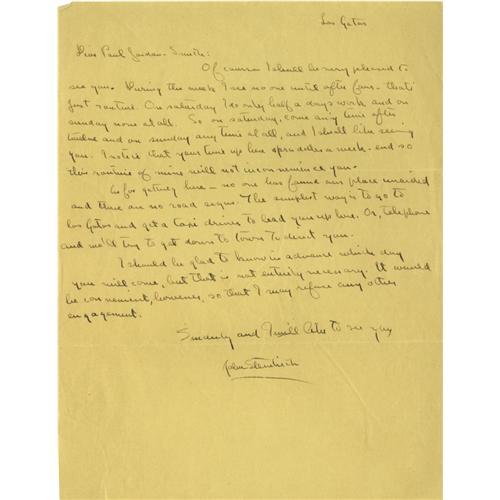 Los Gatos
Dear Paul Jordan-Smith:
Of course I shall be very pleased to
see you. During the week I see no one until after four - that's
just routine. On saturday I do only half a days work and on
sunday none at all. So on saturday, come any time after
twelve and on sunday any time at all, and I shall like seeing
you. I notice that your time up here spreads over a week-end so
this routine of mine will not inconvenience you.
As for getting here - no one has found our place unaided
and there are no road signs. The simplest way is to go to
Los Gatos and get a taxi driver to lead you up here. Or, telephone
and we'll try to get down to town to direct you.
I should be glad to know in advance which day
you will come, but that is not entirely necessary. It would
be convenient, however, so that I may refuse any other
engagement.
Sincerely and I will like to see you
John Steinbeck